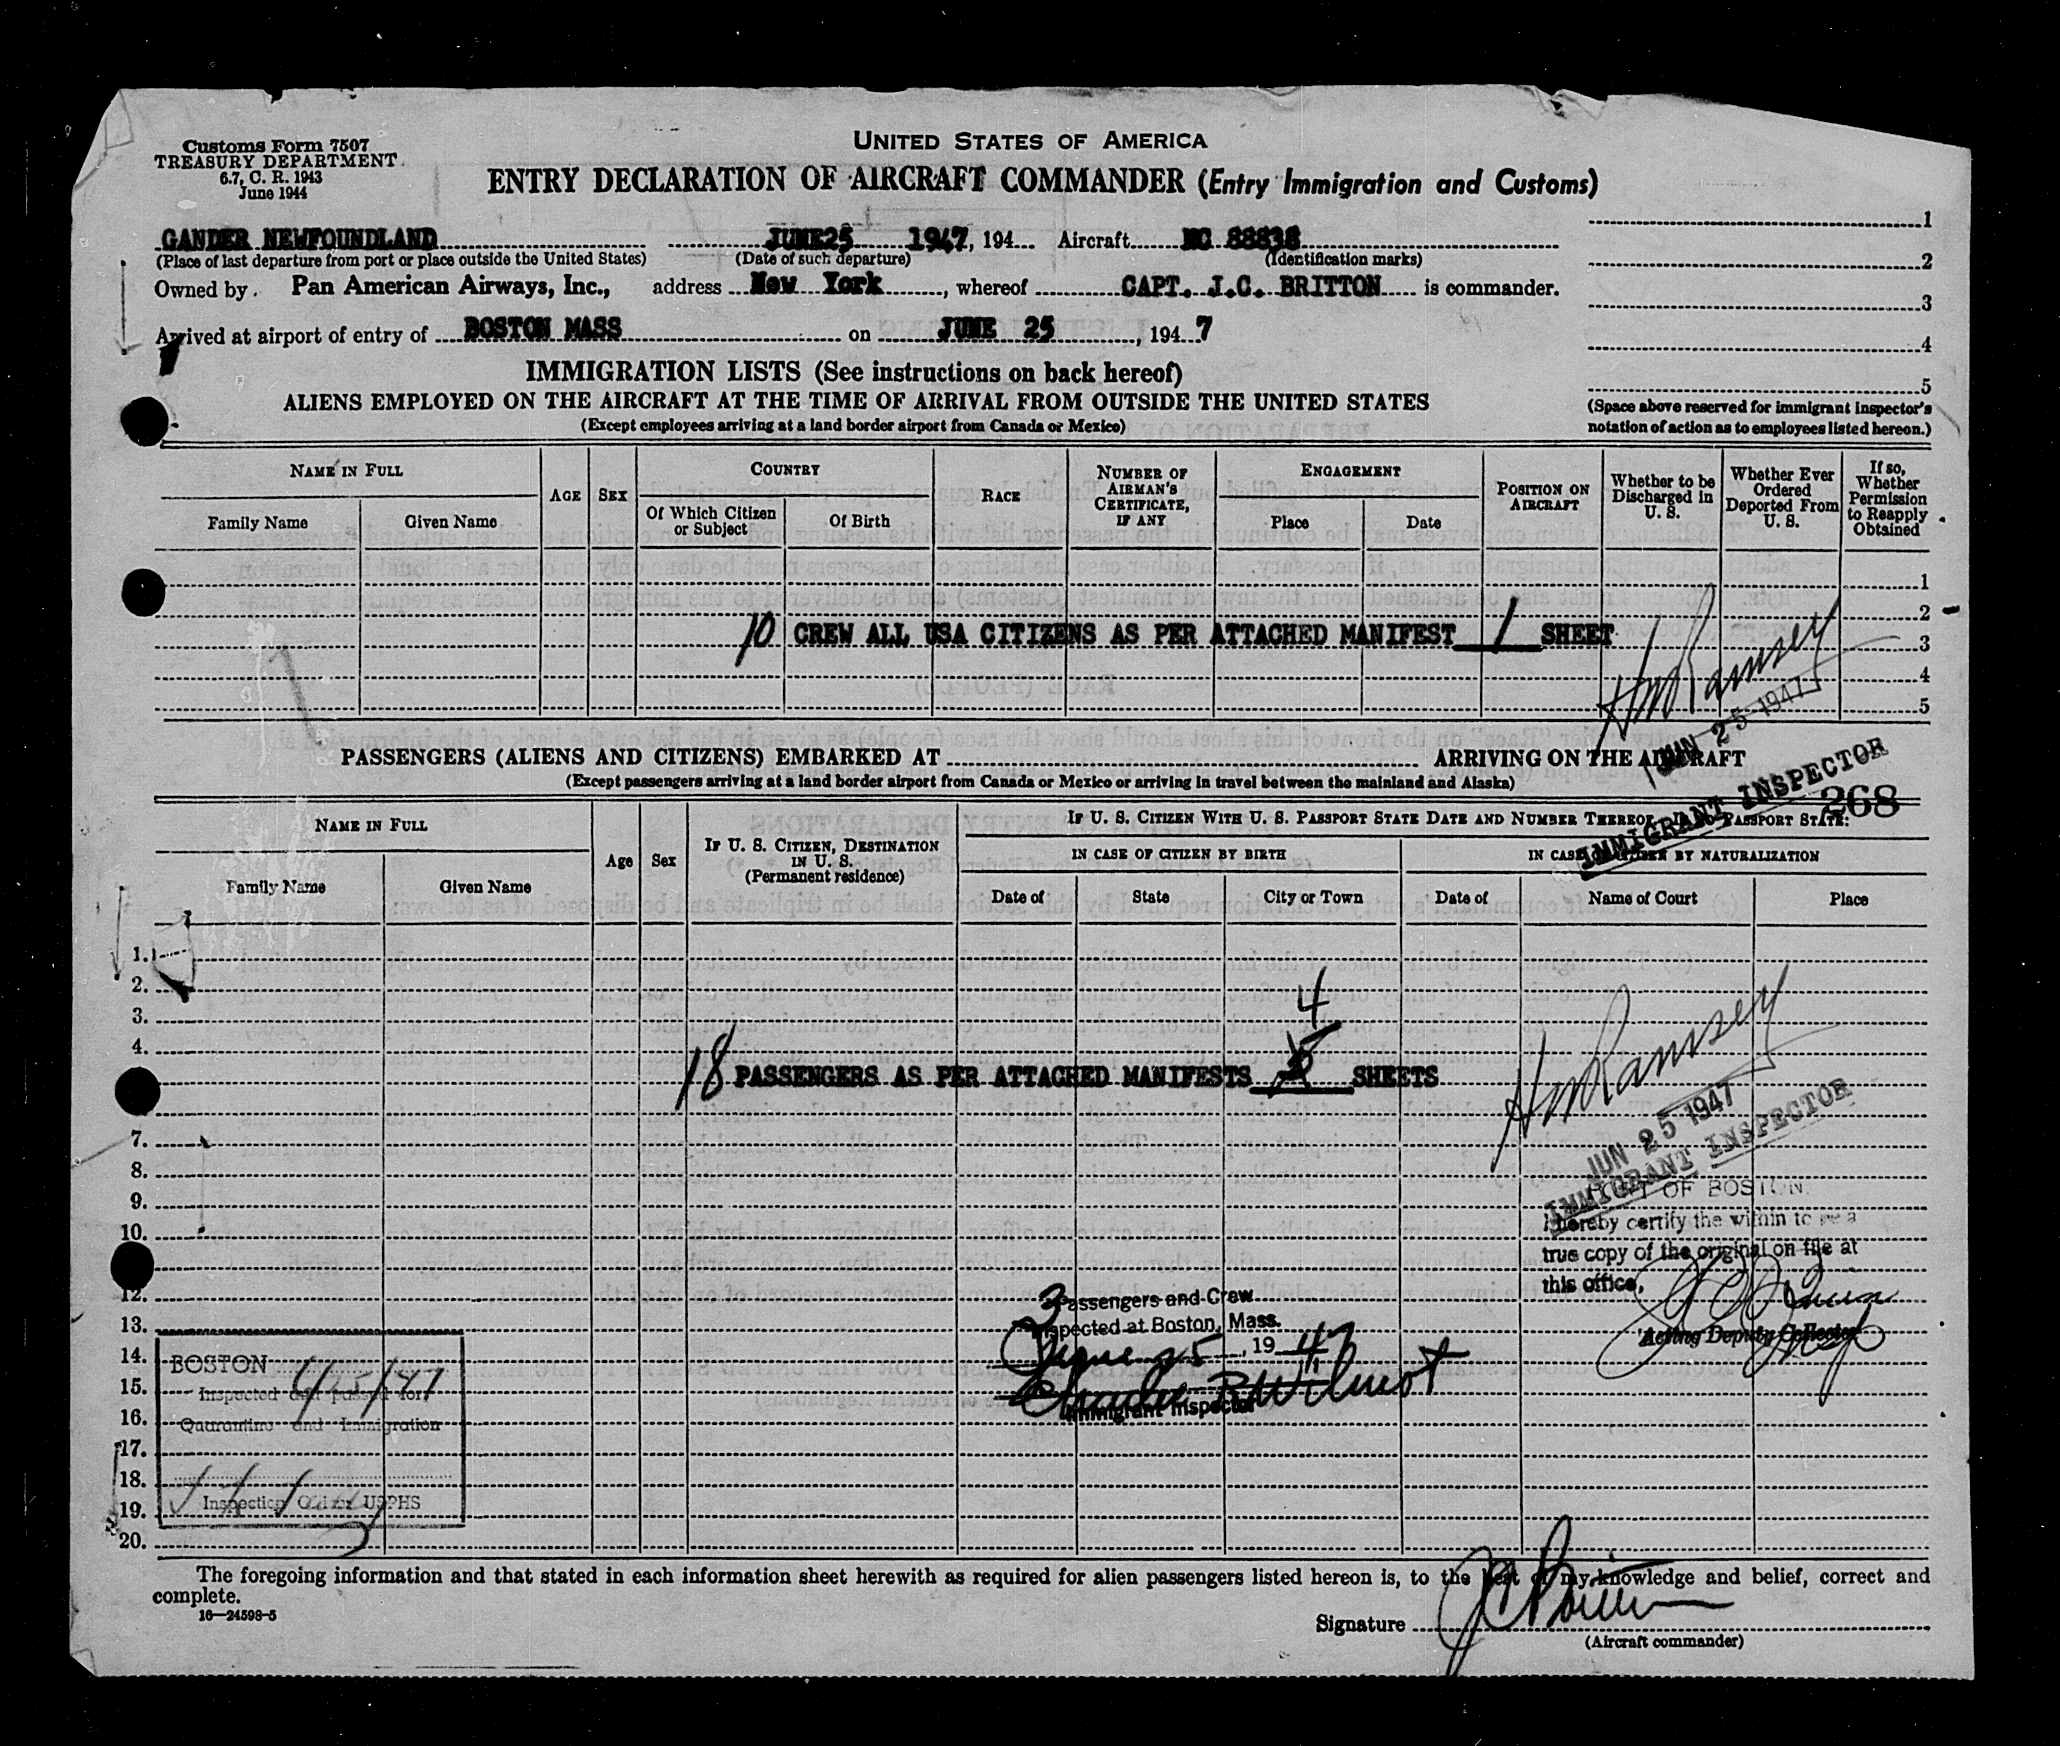 Customs Form 7507
TREASURY DEPARTMENT
6.7, C. R. 1943
June 1944
UNITED STATES OF AMERICA
ENTRY DECLARATION OF AIRCRAFT COMMANDER (Entry Immigration and Customs)
GANDER NEWFOUNDLAND JUNE25 1947, 194 Aircraft NC 88838
(Place of last departure from port or place outside the United States) (Date of such departure) (Identification marks)
Owned by Pan American Airways, Inc., address New York, whereof CAPT. J.C. BRITTON is commander.
Arrived at airport of entry of BOSTON MASS on JUNE 25, 194 7
1
2
3
4
5
(Space above reserved for immigrant inspector's
notation of action as to employees listed hereon.)
IMMIGRATION LISTS (See instructions on back hereof)
ALIENS EMPLOYED ON THE AIRCRAFT AT THE TIME OF ARRIVAL FROM OUTSIDE THE UNITED STATES
(Except employees arriving at a land border airport from Canada or Mexico)
NAME IN FULL
Family Name Given Name
AGE SEX
COUNTRY
Of Which Citizen
or Subject
Of Birth
RACE
NUMBER OF
AIRMAN'S
CERTIFICATE,
IF ANY
ENGAGEMENT
Place Date
POSITION ON
AIRCRAFT
Whether to be
Discharged in
U. S.
Whether Ever
Ordered
Deported From
U. S.
If so,
Whether
Permission
to Reapply
Obtained
1
2
10 CREW ALL USA CITIZENS AS PER ATTACHED MANIFEST 1 SHEET 3
4
5
HM Ramsey
JUN 25 1947
IMMIGRANT INSPECTOR
PASSENGERS (ALIENS AND CITIZENS) EMBARKED AT ARRIVING ON THE AIRCRAFT
(Except passengers arriving at a land border airport from Canada or Mexico or arriving in travel between the mainland and Alaska)
268
NAME IN FULL
Family Name Given Name
Age Sex
IF U. S. CITIZEN, DESTINATION
IN U. S.
(Permanent residence)
IF U. S. CITIZEN WITH U. S. PASSPORT STATE DATE AND NUMBER THEREOF. IF NO PASSPORT STATE:
IN CASE OF CITIZEN BY BIRTH
Date of State City or Town
IN CASE OF CITIZEN BY NATURALIZATION
Date of Name of Court Place
1.
2.
3.
4.
4
18 PASSENGERS AS PER ATTACHED MANIFESTS 5 SHEETS
7.
8.
9.
10.
12.
13.
14.
15.
16.
17.
18.
19.
20.
HM Ramsey
JUN 25 1947
IMMIGRANT INSPECTOR
PORT OF BOSTON
I hereby certify the within to be a
true copy of the original on file at
this office,
Acting Deputy Collector
3 Passengers and Crew
Inspected at Boston, Mass.
June 25, 19 47
Wilmot
Immigrant Inspector
BOSTON 6/25/47
Inspected and passed for
Quarantine and Immigration
Inspection Officer USPHS
The foregoing information and that stated in each information sheet herewith as required for alien passengers listed hereon is, to the best of my knowledge and belief, correct and
complete.
16—24598-5
Signature JC Britton
(Aircraft commander)